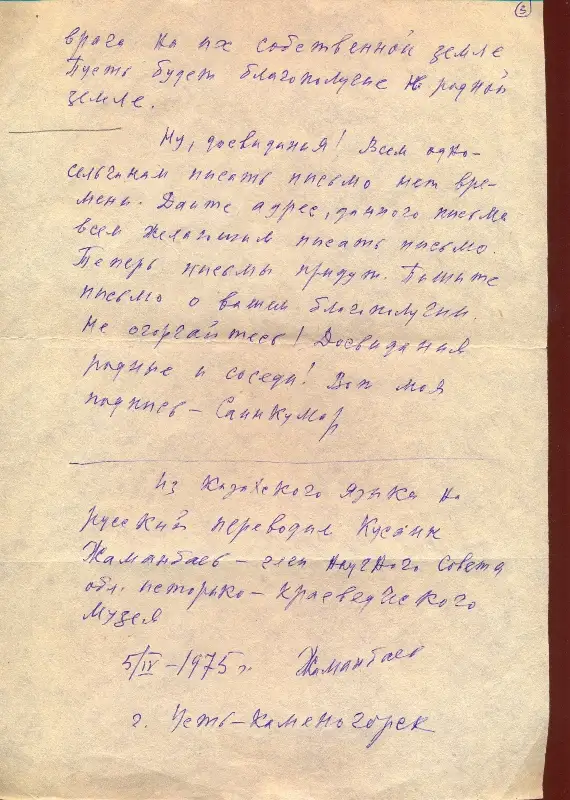 3
врага на их собственной земле
Пусть будет благополучие на родной
земле.
Ну, досвидания! Всем одно-
сельчанам писать письмо нет вре-
мени. Дайте адрес, данного письма
всем желающим писать письмо.
Теперь письмы придут. Пишите
письмо о вашем благополучии.
Не огорчайтесь! Досвидания
родные и соседи! Вот моя
подпись – Саинкумар
Из казахского языка на
русский переводил Кусаин
Жаманбаев – член научного Совета
обл. историко – краеведческого
музея
5/IV – 1975 г. Жаманбаев
г. Усть – Каменогорск